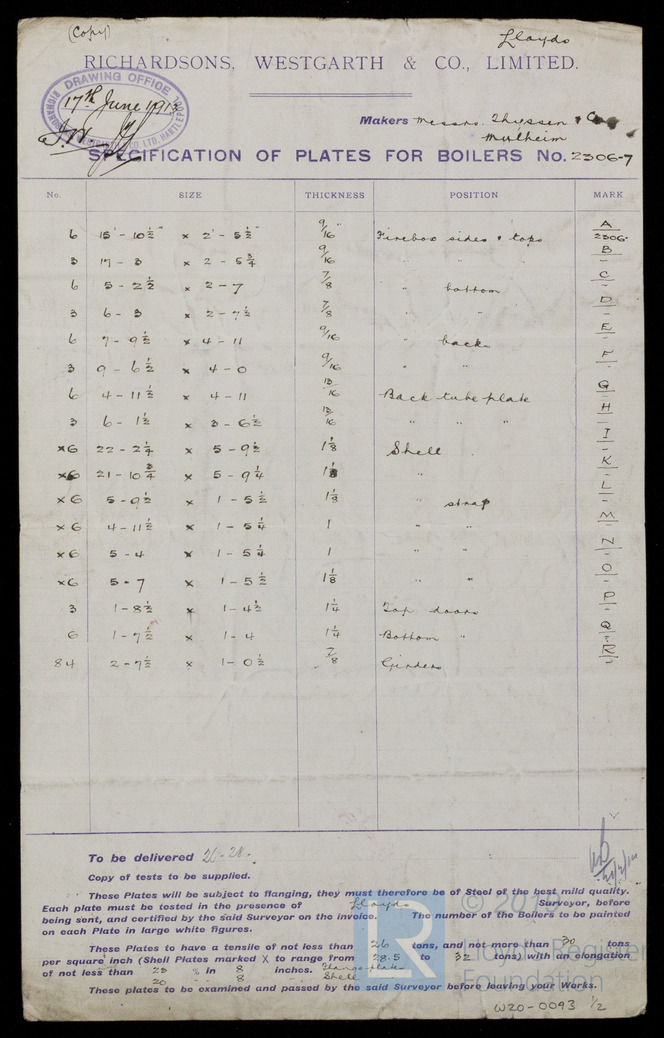 (Copy)
Lloyds
RICHARDSONS, WESTGARTH & CO., LIMITED.
DRAWING OFFICE
17th June 1913
Makers Messrs. Thyssen & Co
Mulheim
SPECIFICATION OF PLATES FOR BOILERS No. 2306-7
No. SIZE THICKNESS POSITION MARK
6 15' - 10½" × 2' - 5½" 9/16" Firebox sides & tops A 2306.
3 17 - 3 × 2 - 5¾ 9/16 " " " B
6 5 - 2½ × 2 - 7 7/8 " bottom C
3 6 - 3 × 2 - 7½ 7/8 " " D
6 7 - 9½ × 4 - 11 9/16 " back E
3 9 - 6½ × 4 - 0 9/16 " " F
6 4 - 11½ × 4 - 11 13/16 Back tube plate G
3 6 - 1½ × 3 - 6½ 13/16 " " " H
×6 22 - 2¼ × 5 - 9½ 1⅛ Shell I
×6 21 - 10¾ × 5 - 9¼ 1⅛ " K
×6 5 - 9½ × 1 - 5½ 1⅛ " strap L
×6 4 - 11½ × 1 - 5¼ 1 " " M
×6 5 - 4 × 1 - 5¼ 1 " " N
×6 5 - 7 × 1 - 5½ 1⅛ " " O
3 1 - 8½ × 1 - 4½ 1¼ Top doors P
6 1 - 7½ × 1 - 4 1¼ Bottom " Q
84 2 - 7½ × 1 - 0½ 7/8 Girders R
To be delivered
Copy of tests to be supplied.
These Plates will be subject to flanging, they must therefore be of Steel of the best mild quality.
Each plate must be tested in the presence of Lloyds Surveyor, before
being sent, and certified by the said Surveyor on the invoice. The number of the Boilers to be painted
on each Plate in large white figures.
These Plates to have a tensile of not less than 26 tons, and not more than 30 tons
per square inch (Shell Plates marked X to range from 28.5 to 32 tons) with an elongation
of not less than 23 % in 8 inches. Flange plate
20 " 8 " Shell
These plates to be examined and passed by the said Surveyor before leaving your Works.
LR
Lloyd's Register
Foundation
W20-0093 1/2